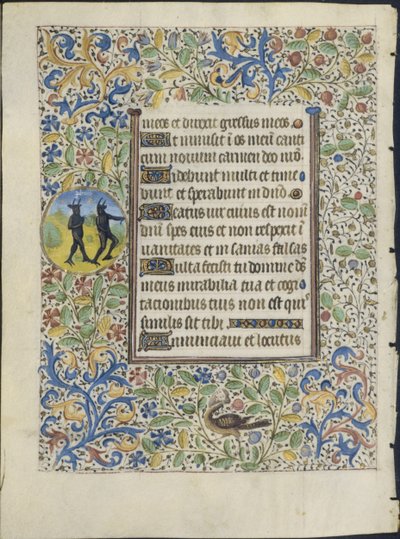 meos et direxit gressus meos
Et inmisit i os meū canti
cum novum carmen deo nrō
Videbunt multi et time
bunt et sperabunt in dnō
Beatus vir cuius est nomē
dnī spes eius et non respexit ī
vanitates et in sanias falsas
Multa fecisti tu domine ds
meus mirabilia tua et cogi
tacionibus tuis non est qui
similis sit tibi
Annunciavi et locutus